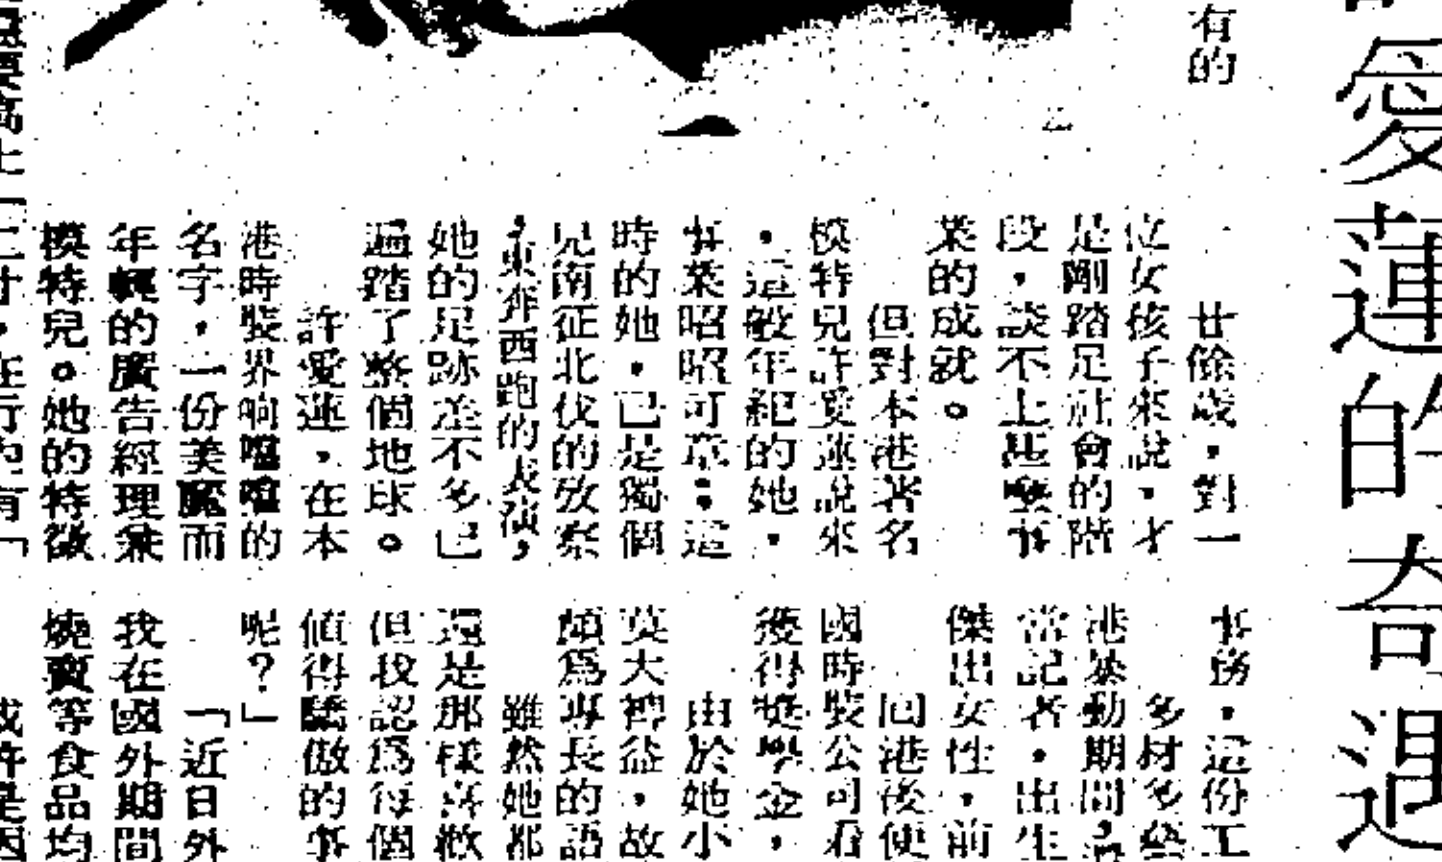 愛蓮的奇遇
有的
廿餘歲，對一
位女孩子來說，才
是剛踏足社會的階
段，談不上甚麼事
業的成就。
但對本港著名
模特兒許愛蓮說來
，這般年紀的她，
事業昭昭可章：這
時的她，已是獨個
兒南征北伐的攷察
，東奔西跑的表演，
她的足跡差不多已
遍踏了整個地球。
許愛蓮，在本
港時裝界响噹噹的
名字，一份美麗而
年輕的廣告經理兼
模特兒。她的特徵
事務，這份工
多材多藝
港暴動期間
當記者，出生
傑出女性，前
回港後便
國時裝公司看
獲得獎學金，
由於她小
莫大裨益，故
頗爲專長的語
雖然她都
還是那樣喜歡
但我認爲每個
值得驕傲的事
呢？」
「近日外
我在國外期間
燒賣等食品均
或許是因